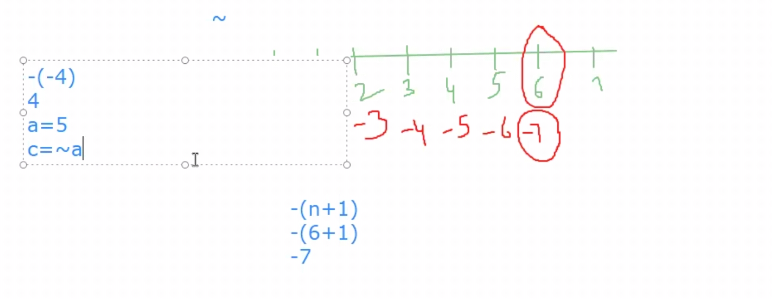 ~
-(-4)
4
a=5
c=~a
2 3 4 5 6 7
-3 -4 -5 -6 -7
-(n+1)
-(6+1)
-7